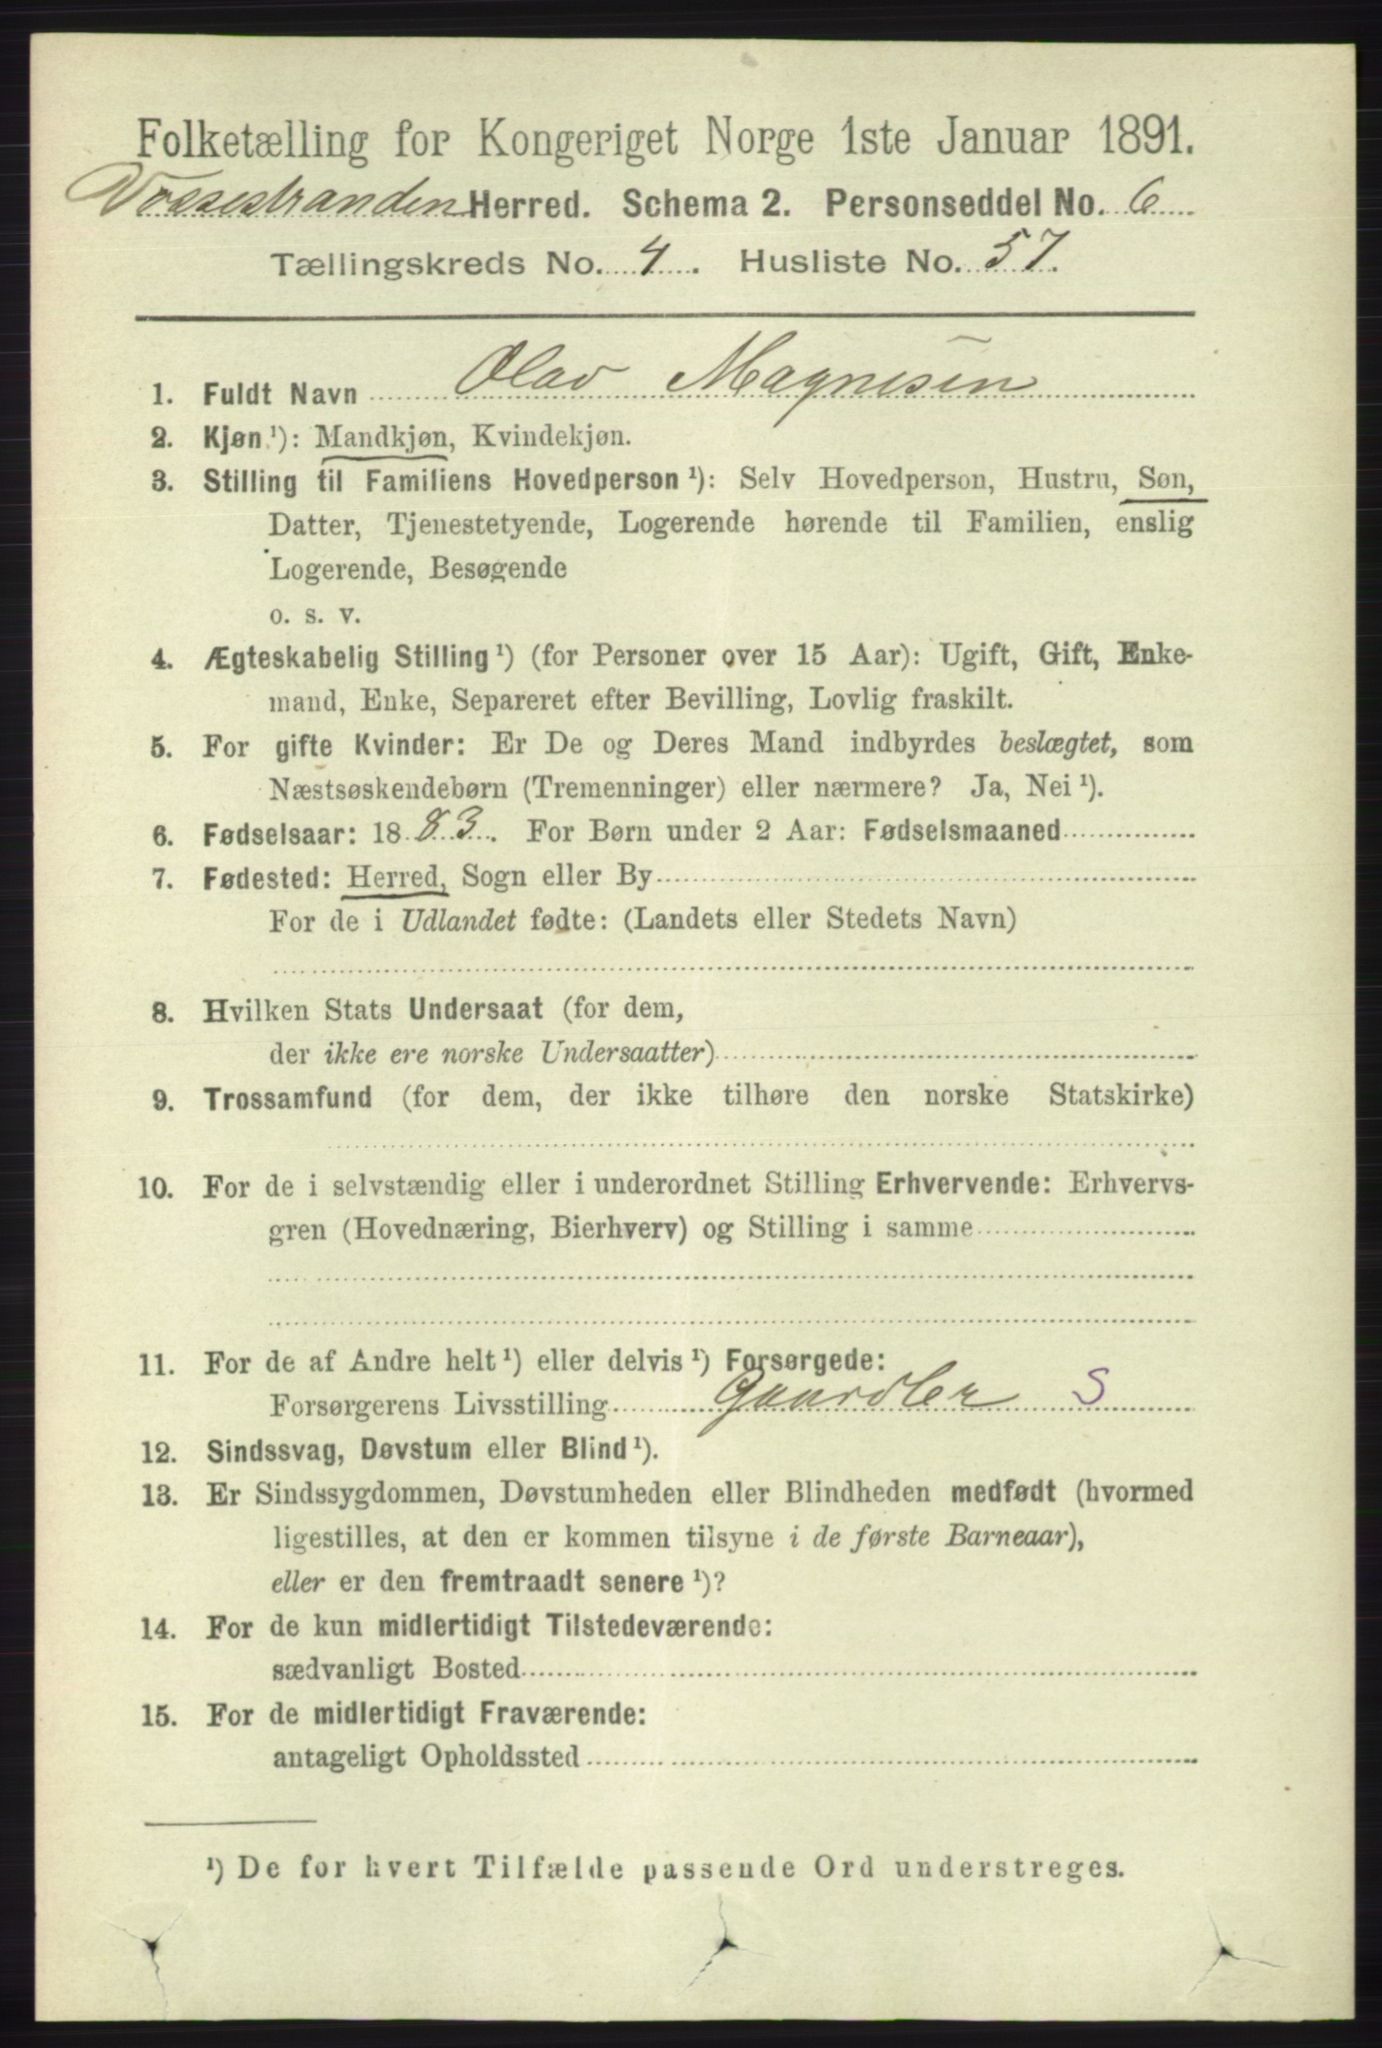 Folketælling for Kongeriget Norge 1ste Januar 1891.
Vossestranden Herred. Schema 2. Personseddel No. 6
Tællingskreds No. 4. Husliste No. 57.
1. Fuldt Navn Olav Magnesen
2. Kjøn ¹): Mandkjøn, Kvindekjøn.
3. Stilling til Familiens Hovedperson ¹): Selv Hovedperson, Hustru, Søn,
Datter, Tjenestetyende, Logerende hørende til Familien, enslig
Logerende, Besøgende
o. s. v.
4. Ægteskabelig Stilling ¹) (for Personer over 15 Aar): Ugift, Gift, Enke-
mand, Enke, Separeret efter Bevilling, Lovlig fraskilt.
5. For gifte Kvinder: Er De og Deres Mand indbyrdes beslægtet, som
Næstsøskendebørn (Tremenninger) eller nærmere? Ja, Nei ¹).
6. Fødselsaar: 1883. For Børn under 2 Aar: Fødselsmaaned
7. Fødested: Herred, Sogn eller By
For de i Udlandet fødte: (Landets eller Stedets Navn)
8. Hvilken Stats Undersaat (for dem,
der ikke ere norske Undersaatter)
9. Trossamfund (for dem, der ikke tilhøre den norske Statskirke)
10. For de i selvstændig eller i underordnet Stilling Erhvervende: Erhvervs-
gren (Hovednæring, Bierhverv) og Stilling i samme
11. For de af Andre helt ¹) eller delvis ¹) Forsørgede:
Forsørgerens Livsstilling Gaardbr S
12. Sindssvag, Døvstum eller Blind ¹).
13. Er Sindssygdommen, Døvstumheden eller Blindheden medfødt (hvormed
ligestilles, at den er kommen tilsyne i de første Barneaar),
eller er den fremtraadt senere ¹)?
14. For de kun midlertidigt Tilstedeværende:
sædvanligt Bosted
15. For de midlertidigt Fraværende:
antageligt Opholdssted
¹) De for hvert Tilfælde passende Ord understreges.